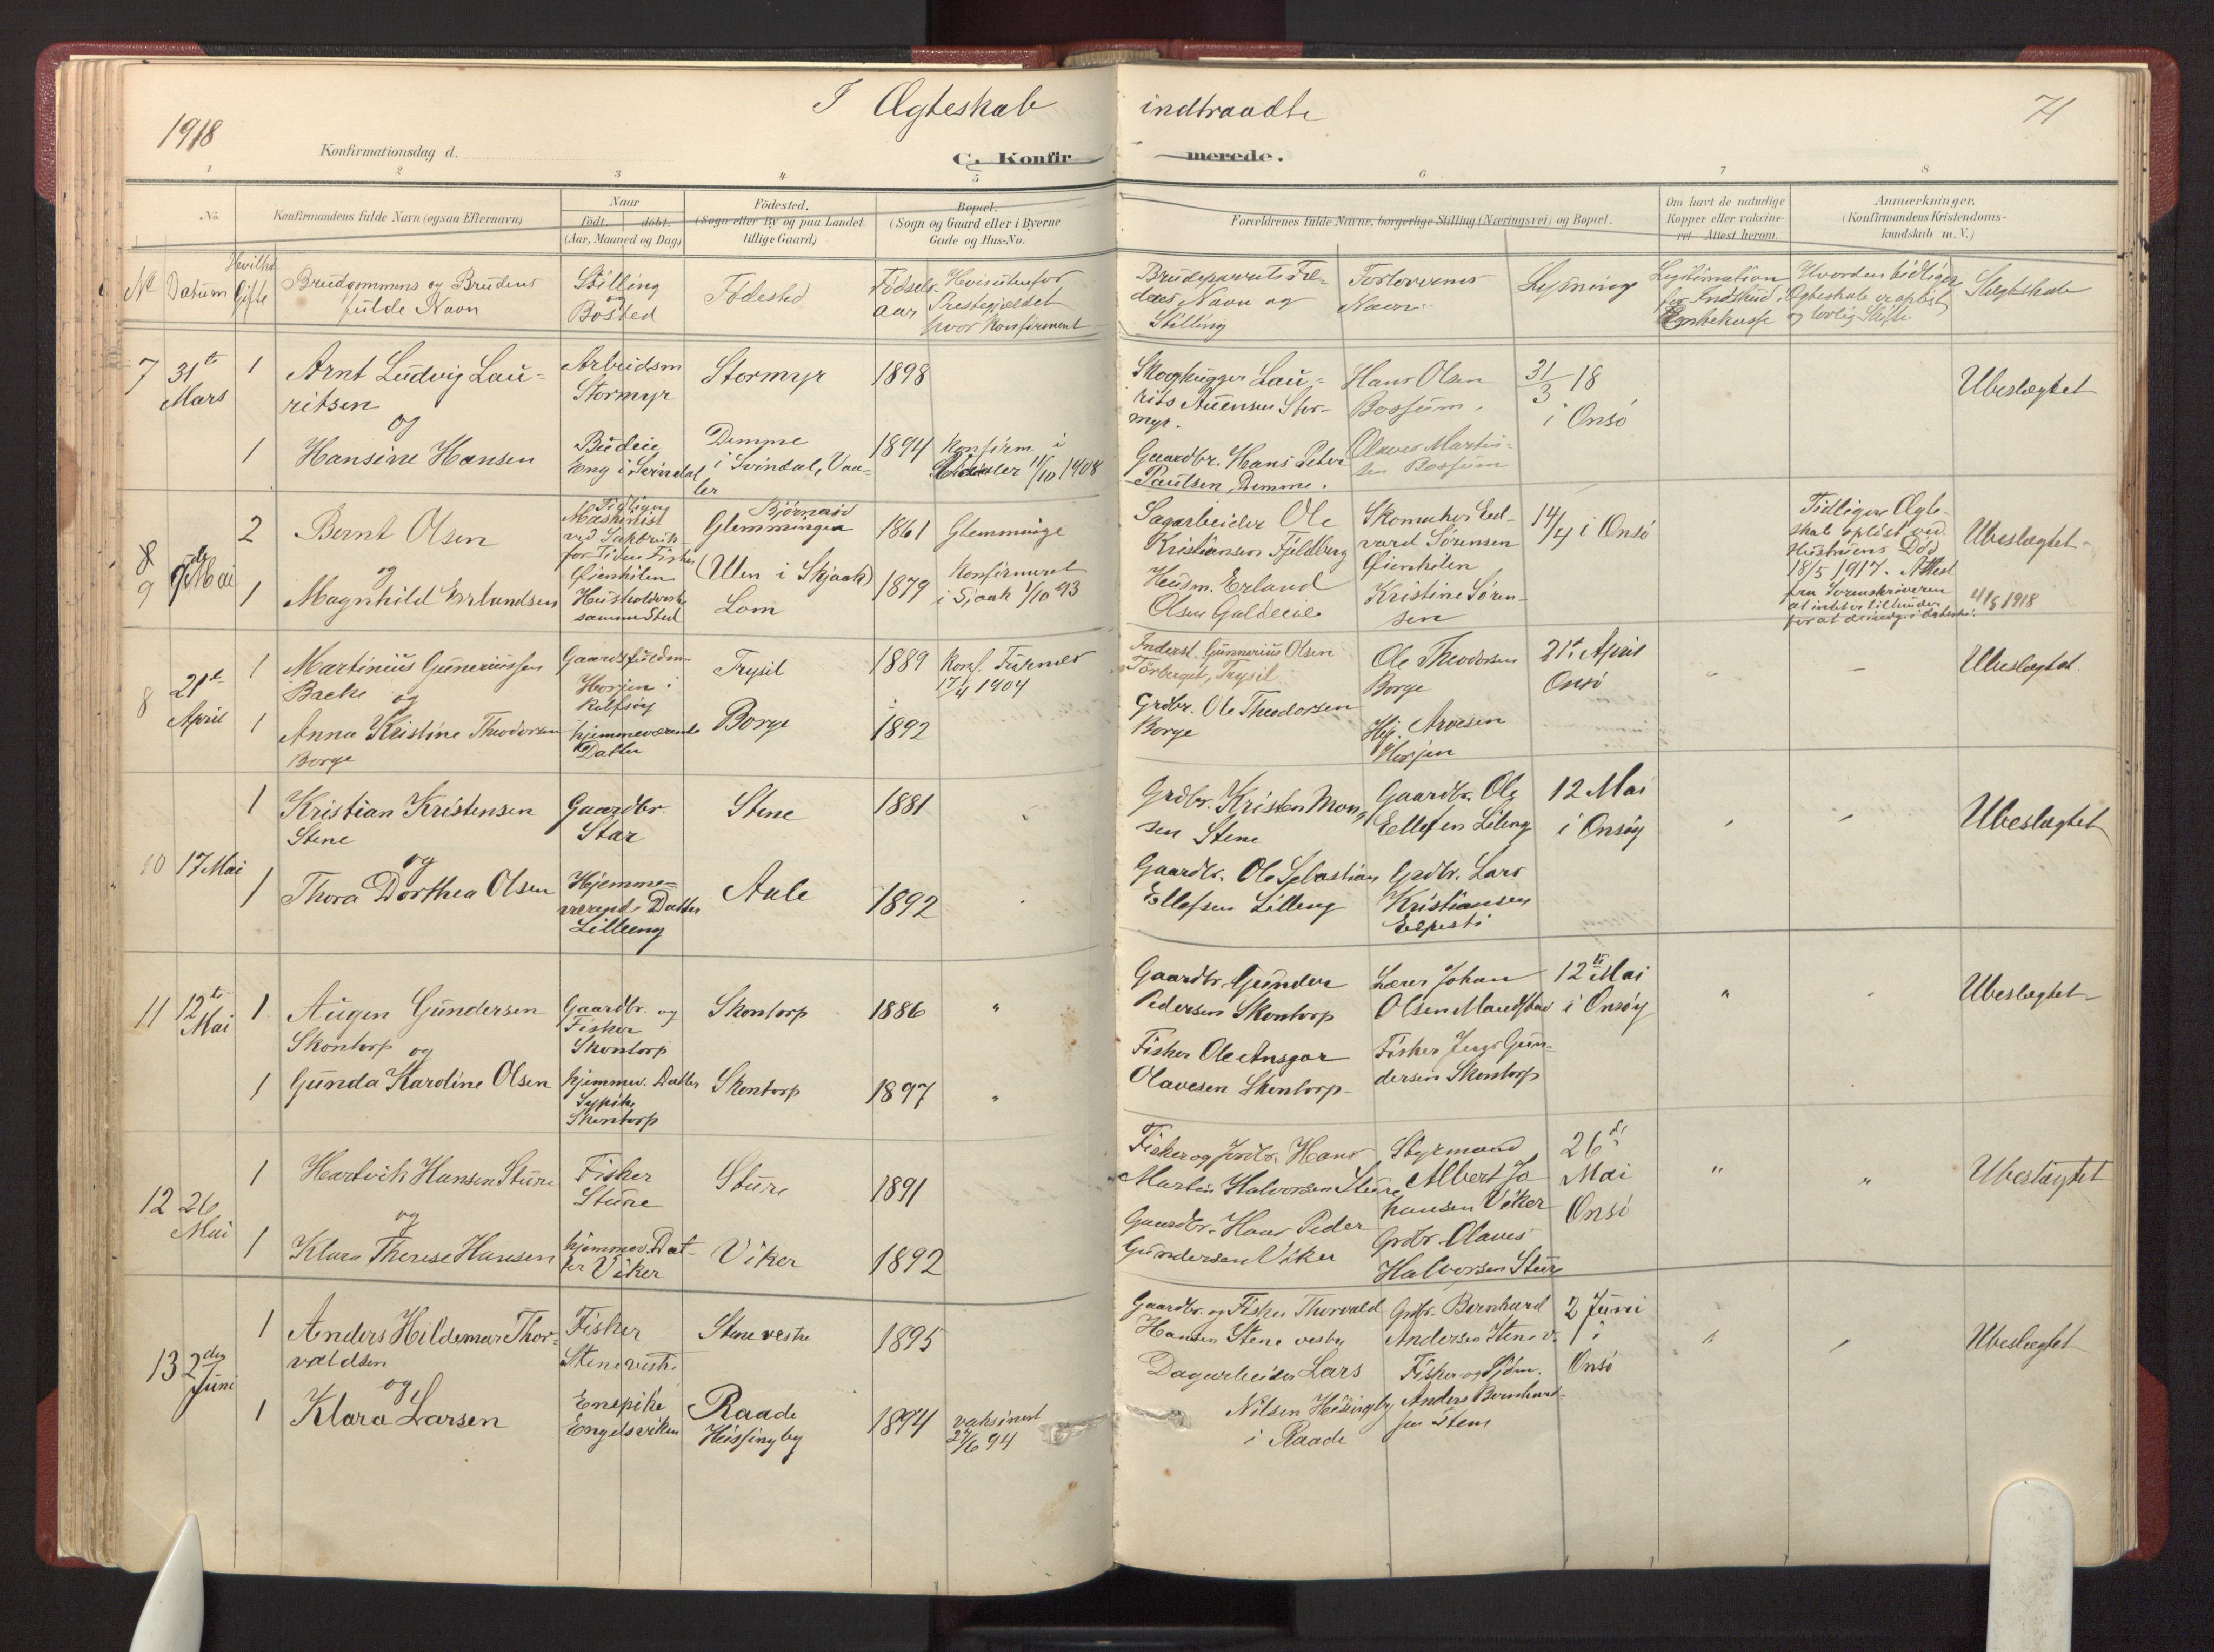 1918
I Ægteskab indtraadte
71
Konfirmationsdag d.
C. Konfirmerede.
1 2 3 4 5 6 7 8
No.
Konfirmandens fulde Navn (ogsaa Efternavn)
Naar
født. døbt.
(Aar, Maaned og Dag)
Fødested.
(Sogn eller By og paa Landet
tillige Gaard)
Bopæl.
(Sogn og Gaard eller i Byerne
Gade og Hus-No.
Forældrenes fulde Navne, borgerlige Stilling (Næringsvei) og Bopæl.
Om havt de naturlige
Kopper eller vakcine-
ret Attest herom.
Anmærkninger.
(Konfirmandens Kristendoms-
kundskab m. V.)
No
Datum
Hvilket
Gifte
Brudgommens og Brudens
fulde Navn
Stilling
og
Bosted
Fødested
Fødsels
aar
Hvis udenfor
Prestegjældet
hvor Konfirmeret
Brudeparrets Fæ-
dres Navn og
Stilling
Forlovernes
Navn
Lysning
Legitimation
for Indskud i
Enkekasse
Hvordan tidligere
Ægteskab er opløst
og lovlig Skifte
Slægtskab
7
31te
Mars
1
Arnt Ludvig Lau-
ritsen
og
Arbeidsm
Stormyr
Stormyr
1898
Skoghugger Lau-
rits Auensen Stor-
myr.
Hans Olsen
Bossum.
31/3 18
i Onsö
Ubeslægtet
1
Hansine Hansen
Budeie
Eng i Svindal
Dimme
i Svindal, Vaa-
ler
1894
Konfirm. i
Vaaler 11/10 1908
Gaardbr. Hans Peter
Paulsen, Demme.
Olaves Martin-
sen Bossum
8
9
9de Mai
2
Bernt Olsen
og
Tidligere
Maskinist
ved Fabrik
for Tiden Fisker
Øienkilen
Björnerød
Glemminge
1861
Glemminge
Sagarbeider Ole
Kristiansen Fjeldberg
Skomaker Ed-
vard Sørensen
Øienkilen
14/4 i Onsö
Tidligere Ægte-
skab opløst ved
Hustruens Død
18/5 1917. Attest
fra Sorenskriveren
at intet er tilhinder
4/5 1918
Ubeslægtet
1
Magnhild Erlandsen
Husholderske
samme Sted
(Ulen i Skjaak)
Lom
1879
Konfirmeret
i Sjaak 1/10 93
Husm. Erland
Olsen
Kristine Sören-
sen
8
21de
April
1
Martinius Guneriussen
Bache
og
Gaardsfuldm.
Horjen i
Rolfsöy
Trysil
1889
Konf. Furnes
17/4 1904
Anderst. Gunnerius Olsen
Törberget, Trysil
Ole Theodorsen
Borge
21de April
Onsö
Ubeslægtet.
1
Anna Kristine Theodorsen
Borge
hjemmeværende
Datter
Borge
1892
Grdbr. Ole Theodorsen
Borge
Hj. Arvesen
Horjen
10
17 Mai
1
Kristian Kristensen
Stene
og
Gaardbr.
Star
Stene
1881
Grdbr. Kristen Mon-
sen Stene
Gaardbr. Ole
Ellefsen Lileng
12 Mai
i Onsöy
Ubeslægtet
1
Thora Dorthea Olsen
Hjemme-
værende Datter
Lilleeng
Aale
1892
Gaardbr. Ole Sebastian
Ellefsen Lilleng
Grdbr. Lars
Kristiansen
Elpesti
11
12te
Mai
1
Augen Gundersen
Skontorp og
Gaardbr. og
Fisker
Skontorp
Skontorp
1886
"
Gaardbr. Gunder
Pedersen Skontorp
Lærer Johan
Olsen
12te Mai
i Onsöy
"
Ubeslægtet
1
Gunda Karoline Olsen
hjemmev. Datter
Sypike
Skontorp
Skontorp
1897
"
Fisker Ole Ansgar
Olavesen Skontorp
Fisker Jens Gun-
dersen Skontorp
12
26
Mai
1
Hartvik Hansen Sture
og
Fisker
Sture
Sture
1891
Fisker og Jordbr. Hans
Martin Halvorsen Sture
Styrmand
Albert Jo
hansen Viker
26de
Mai
Onsö
"
"
Ubeslægtet
1
Klara Therese Hansen
hjemmev. Dat-
ter Viker
Viker
1892
Gaardbr. Hans Peder
Gundersen Viker
Grdbr. Olaves
Halvorsen Sture
13
2den
Juni
1
Anders Hildemar Thor-
valdsen
og
Fisker
Stene vestre
Stene vestre
1895
Gaardbr. og Fisker Thorvald
Hansen Stene vestre
Grdbr. Bernhard
Andersen Stene v.
2 Juni
i
Onsö
"
Ubeslægtet
1
Klara Larsen
Enepike
Engelsviken
Raade
Heissingby
1894
vaksinert
27/6 94
Dagarbeider Lars
Nilsen Hissingby
i Raade
Fisker og Sjöm.
Anders Bernhard-
sen Stene